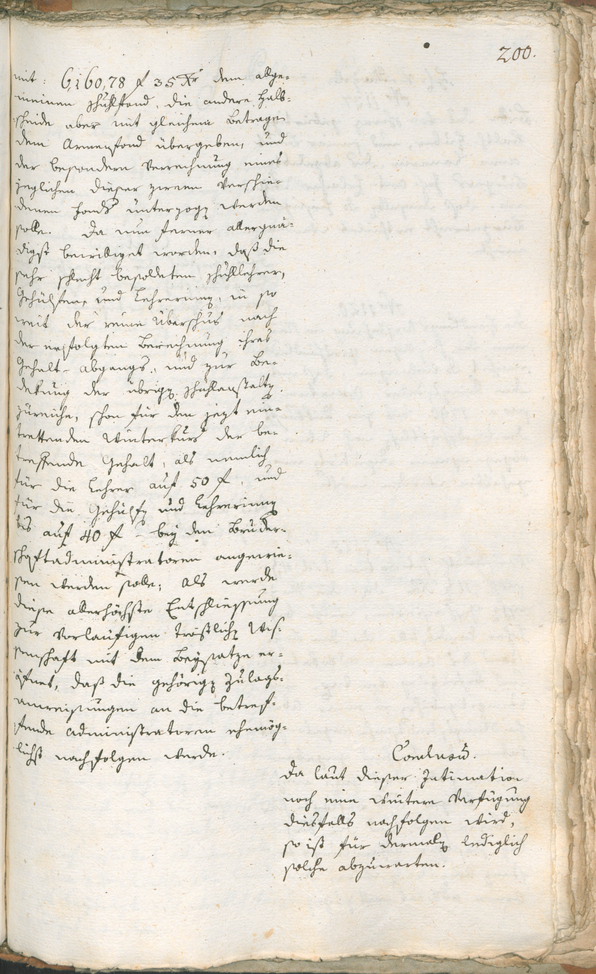 200.
mit: 6,160,78 f 35 Xr dem allge-
meinen Schulfond, die andere Halb-
scheide aber mit gleichem Betrage
dem Armenfond übergeben, und
der besondern Verrechnung eines
jeglichen dieser zween verschie-
denen Fonds unterzogen werden
solle. Da nun ferner allergnä-
digst bewilliget worden, daß die
sehr schlecht besoldeten Schullehrer,
Gehülfen, und Lehrerinen, in so
weit der reine Überschus nach
der erfolgten Berechnung ihres
Gehalt-abgangs, und zur Be-
dekung der übrigen Schulanstalten
zureiche, schon für den jezt ein-
trettenden Winterkurs der be-
treffende Gehalt, als nemlich
für die Lehrer auf 50 f, und
für die Gehülfen und Lehrerinen
bis auf 40 f bey den Bruder-
schaftadministratoren angewie-
sen werden solle; Als werde
diese allerhöchste Entschliessung
zur vorläufigen tröstlichen Wis-
senschaft mit dem Beysatze er-
öfnet, daß die gehörigen Zulags-
anweisungen an die betref-
fende Administratoren ehemög-
lichst nachfolgen werde.
Conclusum.
Da laut dieser Intimation
noch eine weitere Verfügung
diesfalls nachfolgen wird,
so ist für dermalen lediglich
solche abzuwarten.